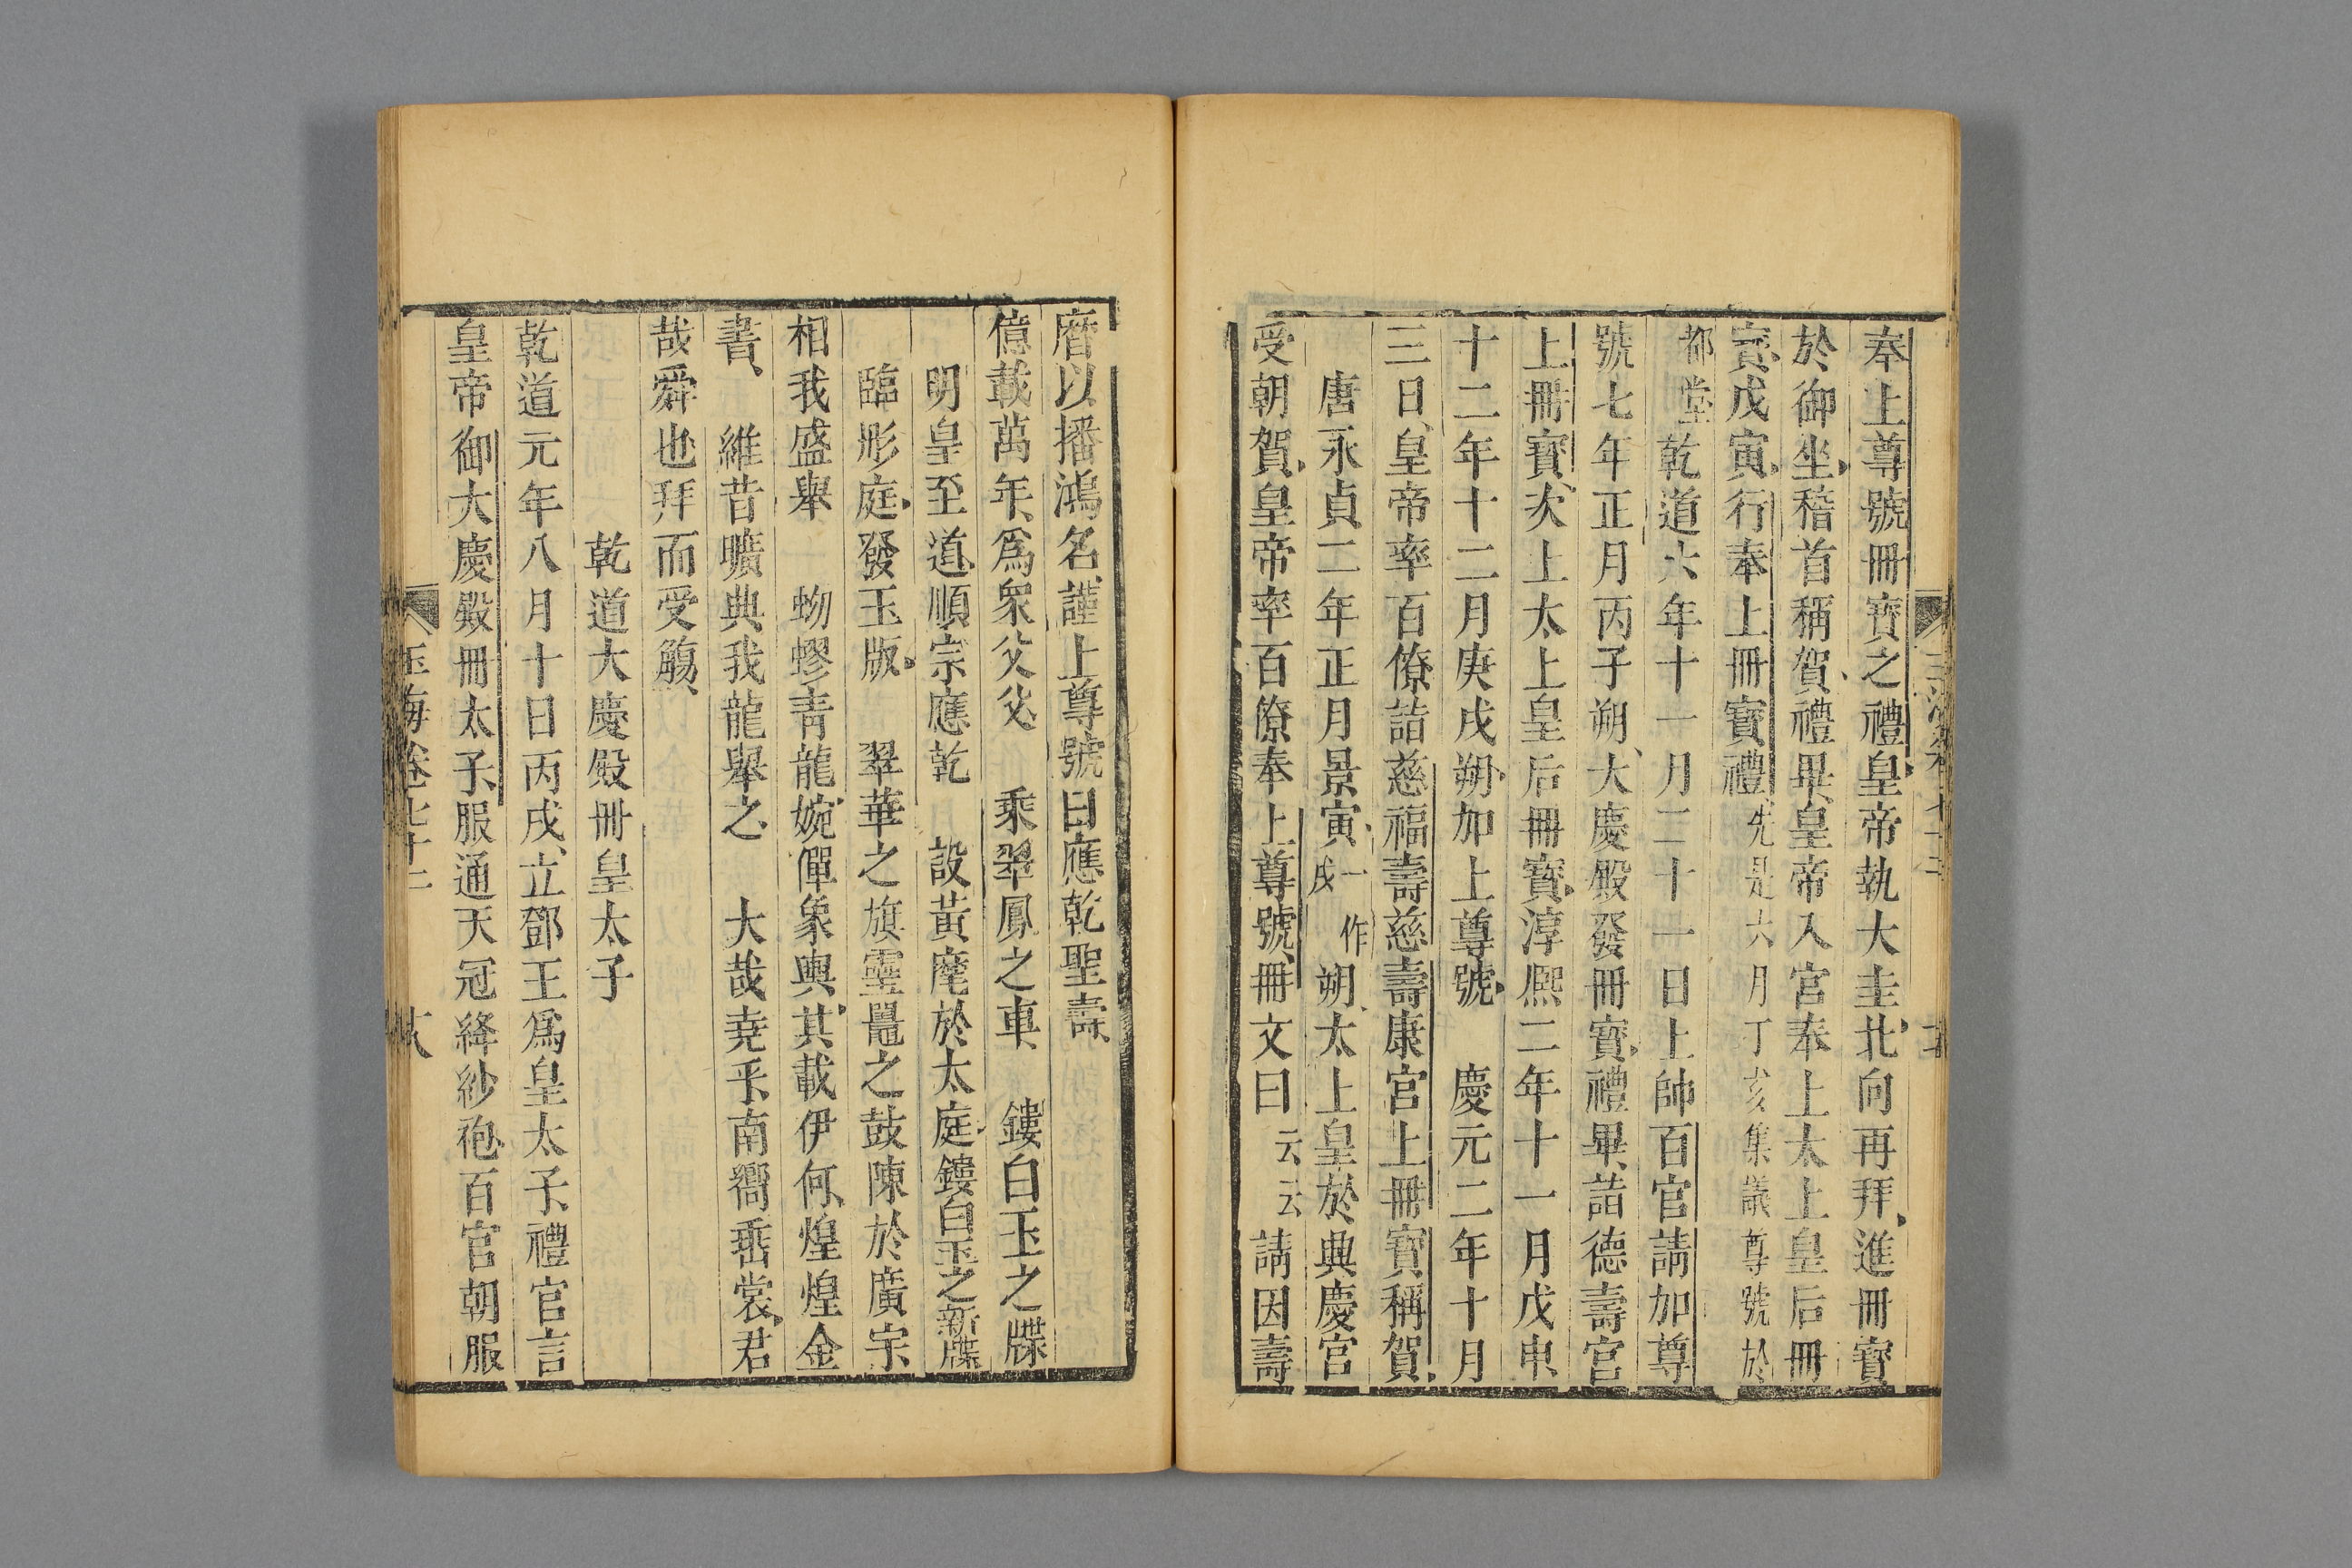 奉上尊號冊寶之禮皇帝執大圭北向再拜進冊寶
於御坐稽首稱賀禮畢皇帝入宮奉上太上皇后冊
寶戊寅行奉上冊寶禮先是六月丁亥集議尊號於
都堂乾道六年十一月二十一日上帥百官請加尊
號七年正月丙子朔大慶殿發冊寶禮畢詣德壽宮
上冊寶次上太上皇后冊寶淳熈二年十一月戊申
十二年十二月庚戌朔加上尊號 慶元二年十月
三日皇帝率百僚詣慈福壽慈壽康宮上冊寶稱賀
唐永貞二年正月景寅一作戌朔太上皇於興慶宮
受朝賀皇帝率百僚奉上尊號冊文曰云云請因壽
曆以播鴻名謹上尊號曰應乾聖壽
億載萬年爲衆父父 乘翠鳳之車 鏤白玉之牒
明皇至道順宗應乾 設黃麾於太庭鏤白玉之新牒
臨彤庭發玉版 翠華之旗靈鼉之鼓陳於廣宗
相我盛舉 蚴蟉青龍婉僤象輿其載伊何煌煌金
書 維昔曠典我龍舉之 大哉堯乎南嚮垂裳君
哉舜也拜而受觴
乾道大慶殿冊皇太子
乾道元年八月十日丙戌立鄧王爲皇太子禮官言
皇帝御大慶殿冊太子服通天冠絳紗袍百官朝服
玉海卷七十二 十八